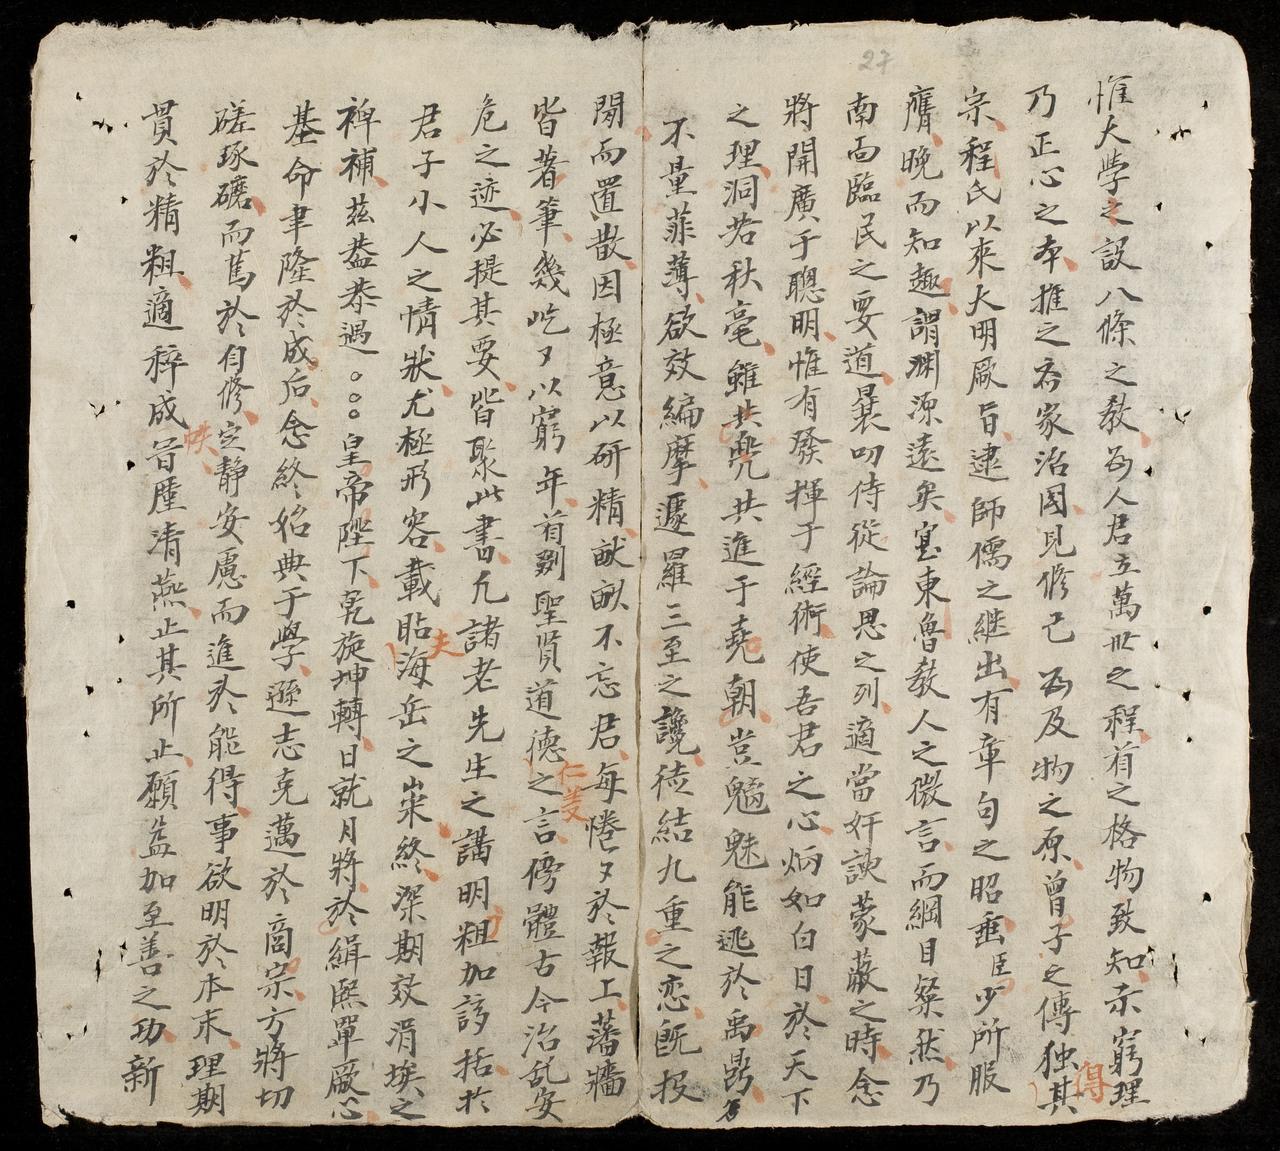 27
惟大學之設八條之教為人君立萬世之程首之格物致知示窮理
乃正心之本推之齐家治國見修己為及物之原曾子之傳独其
得
宗程氏以來大明厥旨逮師儒之継出有章句之昭垂臣少所服
膺晚而知趣謂渊源遠矣寔東魯教人之微言而綱目粲然乃
南面臨民之要道曩叨侍從論思之列適當奸諛蒙蔽之時念
將開廣于聰明惟有發揮于經術使吾君之心炳如白日於天下
之理洞若秋毫雖共兜共進于堯朝豈魑魅能逃於禹鼎
不量菲薄欲效編摩遽羅三至之讒徒結九重之恋旣投
閒而置散因極意以研精畎畝不忘君每惓〻於報上藩牆
皆著筆幾屹〻以窮年首剟聖賢道德之言傍體古今治乱安
仁
危之迹必提其要皆聚此書凢諸老先生之講明粗加訪括於
君子小人之情狀尤極形容載聁海岳之崇終深期效涓埃之
夫
裨補茲蓋恭遇○○○皇帝陛下乾旋坤轉日就月將於緝熙單厥心
基命聿隆於成后念終始典于學遜志克邁於商宗方將切
磋琢磨而篤於自修定静安慮而進於能得事欲明於本末理期
貫於精粗適稡成習塵清燕止其所止願益加至善之功新
帙